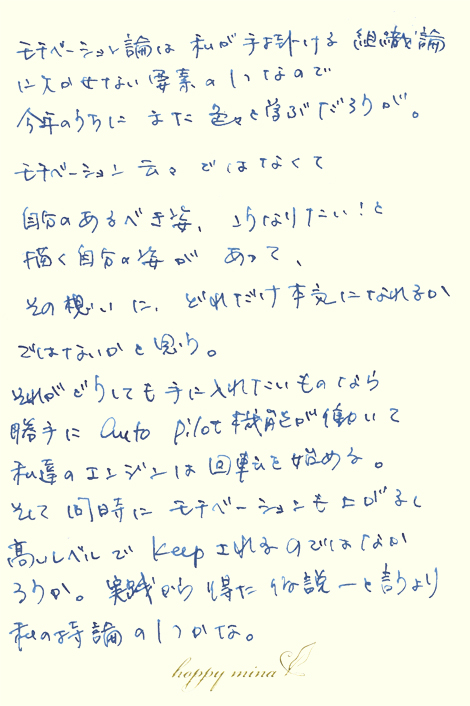 モチベーション論は 私が手掛ける (組織論)
に欠かせない要素の1つなので
今年のうちに また 色々と学ぶだろうが。
モチベーション 云々 ではなくて
自分のあるべき姿、こうなりたい!と
描く自分の姿が あって、
その想いに、どれだけ本気になれるか
ではないかと思う。
それがどうしても手に入れたいものなら
勝手に Auto Pilot機能が働いて
私達のエンジンは回転を始める。
そして同時に モチベーションも上がるし
高いレベルで Keepされるのではなか
ろうか。実践から得た仮説ーと言うより
私の持論の1つかな。
happy mina